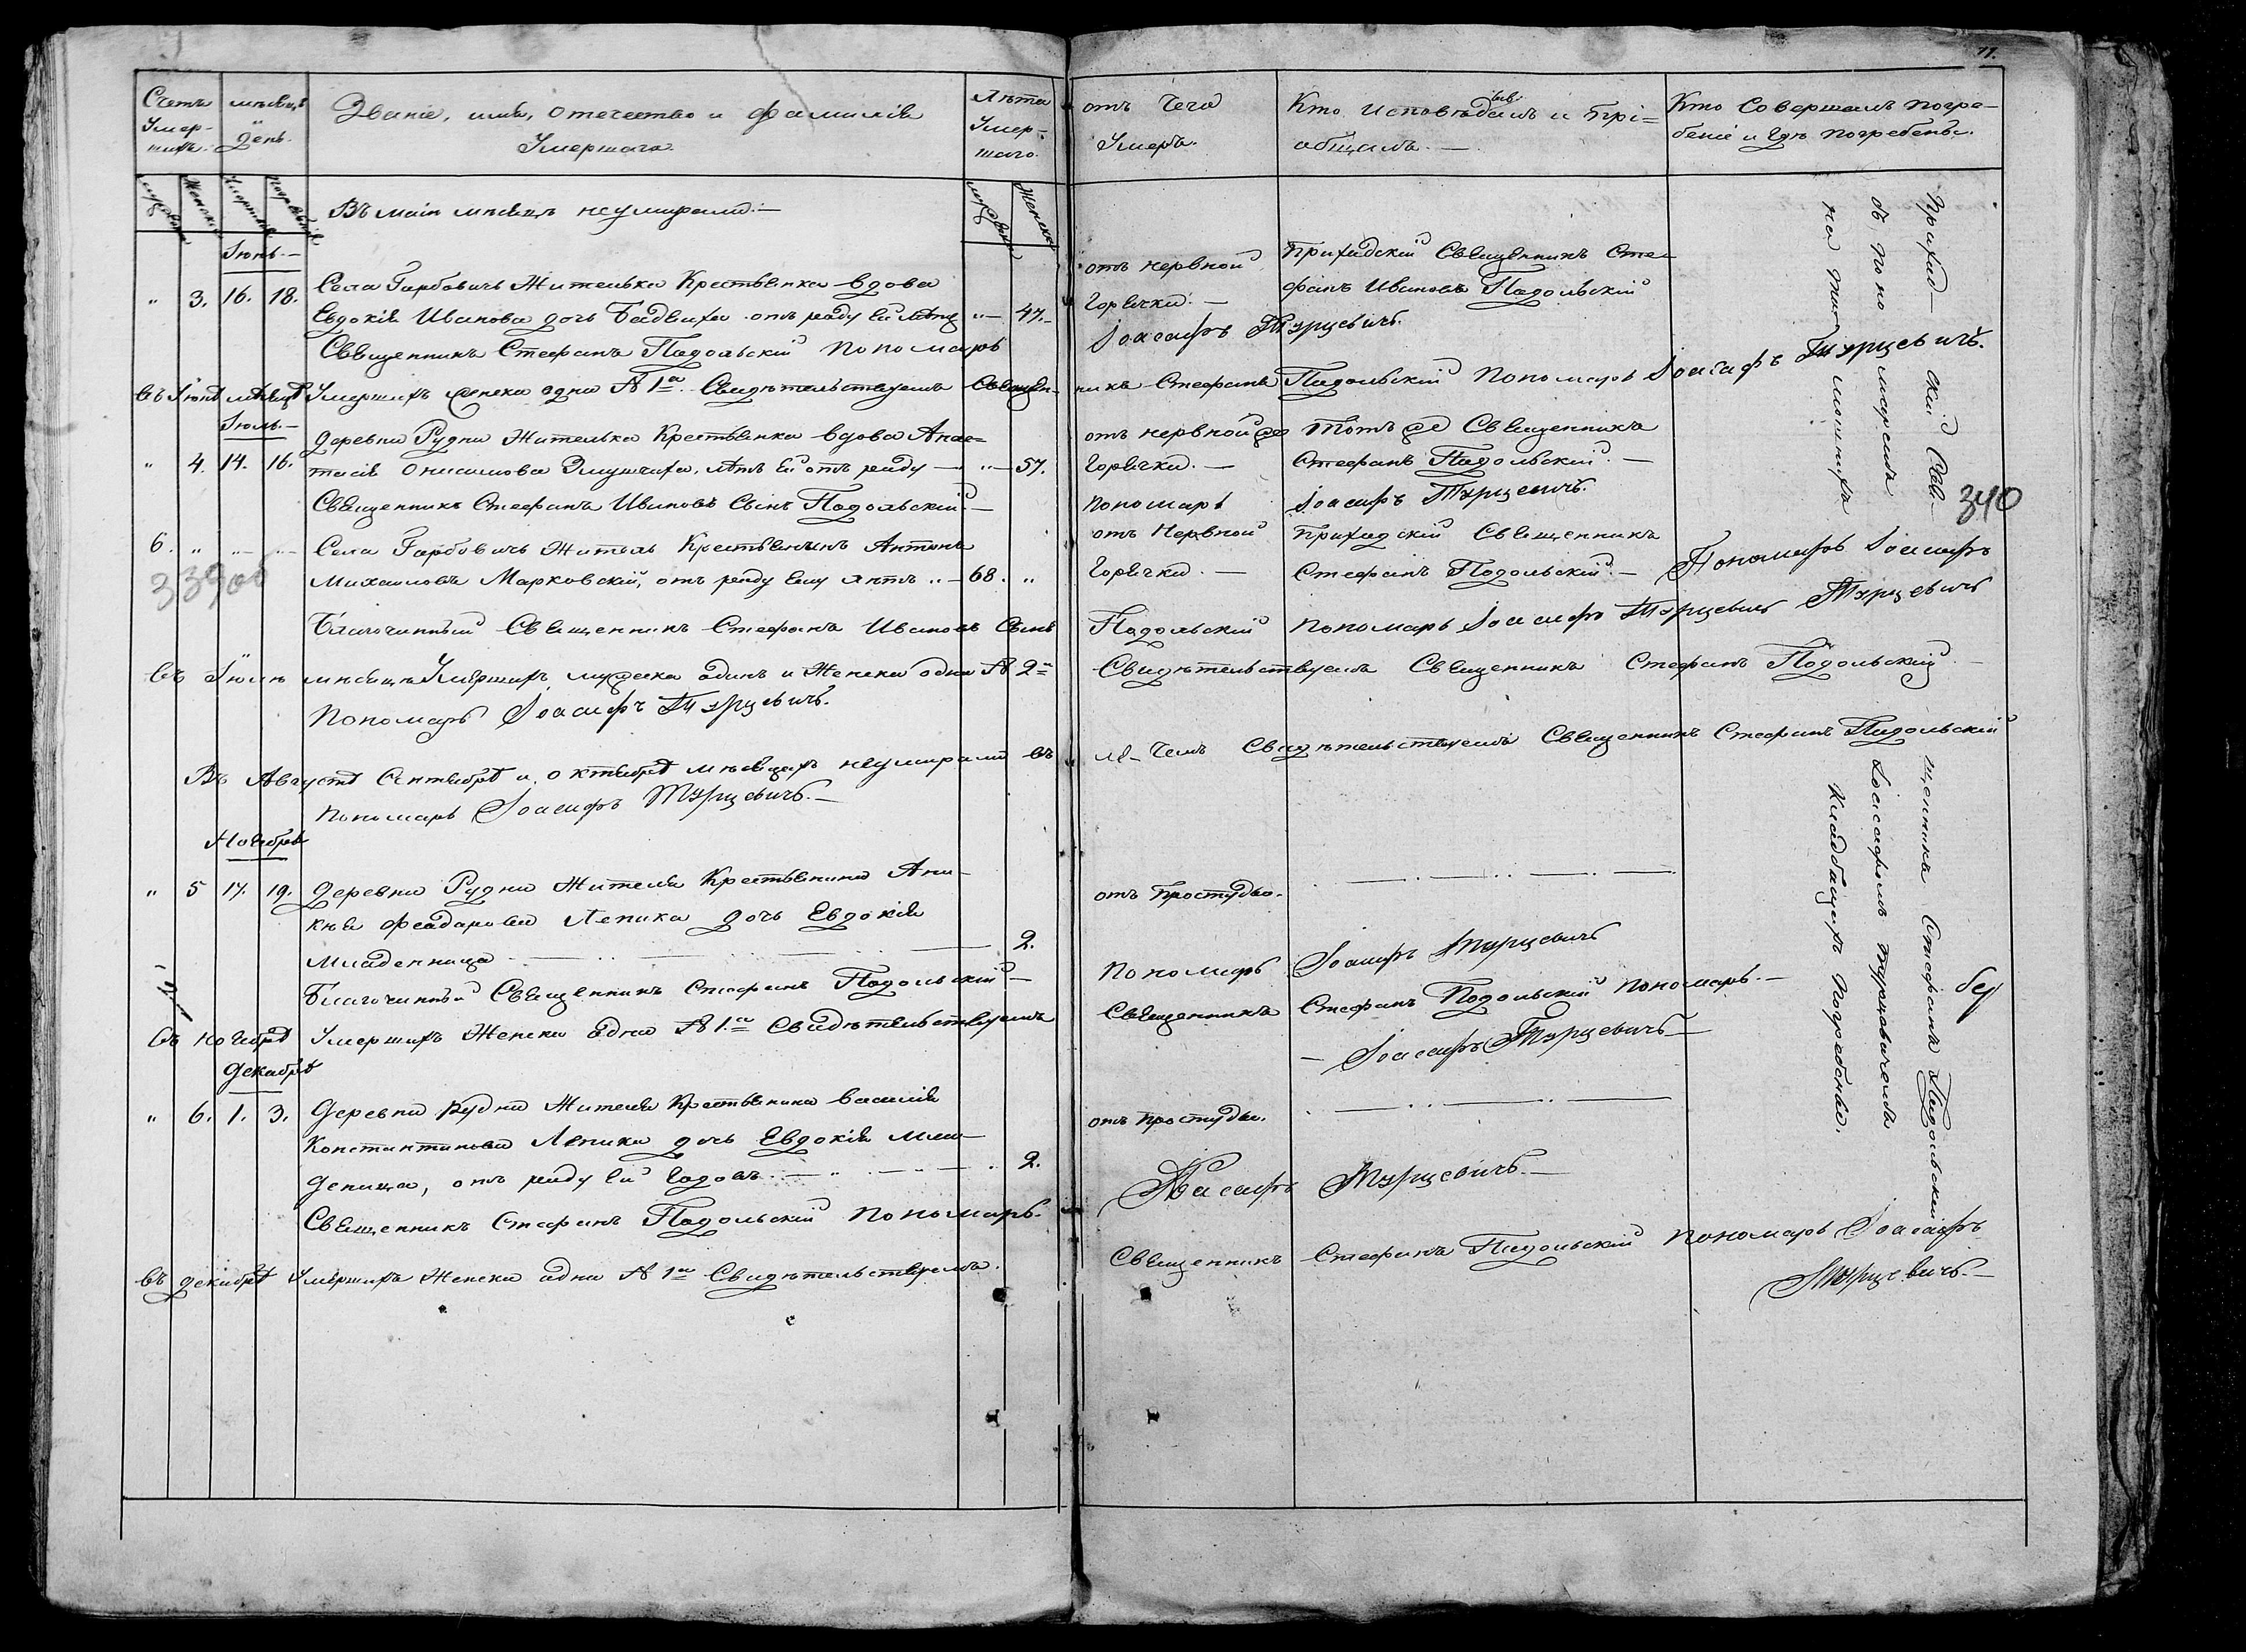 Счетъ Умер-шихъ.
мѣсяцъ день.
Званіе, имя, отечество и фамилія
Умершаго.
Лѣта Умер-шаго.
мужеска
Женска
Умертвія
Погребенія
мужеска
Женска
Въ маіи мѣсяцѣ неумирали.—
Іюнь.—
" 3. 16. 18. Села Гарбовичъ Жителька Крестьянка вдова
Евдокія Иванова дочь отъ роду ей лѣтъ "— 47.—
Священникъ Стефанъ Подольскій Пономарь
въ Іюнѣ мѣсяцѣ Умершихъ женска одна № 1а. Свидѣтельствуемъ Священ-
Іюль.—
деревни Рудни Жителька Крестьянка вдова Анас=
" 4. 14. 16. тасія Онисимова лѣтъ ей отъ роду — "— 57.
Священникъ Стефанъ Ивановъ Сынъ Подольскій.—
6. " Села Гарбовичъ Житель Крестьянинъ Антонъ
339об
Михаиловъ Марковскій, отъ роду ему лѣтъ "— 68. "
Благочинный Священникъ Стефанъ Ивановъ Сынъ
въ Іюлѣ мѣсяцѣ Умершихъ мужеска одинъ и Женска одна № 2а
Пономарь Іоасафъ Турцевичъ.
Въ Августѣ Сентябрѣ и октябрѣ мѣсяцахъ неумирали въ
Пономарь Іоасафъ Турцевичъ.—
Ноябрь
" 5 17. 19. Деревни Рудни Жителя Крестьянина Ани-
кія Феадарова Лепика дочь Евдокія
Младенница 2.
Благочинный Священникъ Стефанъ Подольскій—
въ ноябрѣ Умершихъ Женска одна № 1.а Свидѣтельствуемъ
Декабрѣ
" 6. 1. 3. Деревни Рудни Жителя Крестьянина Василія
Константинова Лепика дочь Евдокія мла-
деница, отъ роду ей Годовъ 2.
Священникъ Стефанъ Подольскій Пономарь.
въ декабрѣ Умершихъ Женска одна № 1а Свидѣтельствуемъ.
отъ Чего
Умеръ.
Кто Исповѣдывалъ и Прі=
общалъ.—
Кто Совершалъ Погре-
беніе и гдѣ Погребены.
отъ нервной
Горячки.—
Приходскій Священникъ Сте-
фанъ Ивановъ Подольскій
Іоасафъ Турцевичъ.
никъ Стефанъ Подольскій Пономарь Іоасафъ Турцевичъ.
отъ нервной же Тотъ же Священникъ
Горячки.— Стефанъ Подольскій.—
Пономарь Іоасафъ Турцевичъ.
отъ Нервной Приходскій Священникъ
Горячки.— Стефанъ Подольскій.— Пономарь Іоасафъ
Подольскій Пономарь Іоасафъ Турцевичъ Турцевичъ
Свидѣтельствуемъ Священникъ Стефанъ Подольскій
Чемъ Свидѣтельствуемъ Священникъ Стефанъ Подольскій
отъ Простуды.
Пономарь Іоасафъ Турцевичъ
Священникъ Стефанъ Подольскій Пономарь.—
— Іоасафъ Турцевичъ—
отъ Простуды.
Іоасафъ Турцевичъ.—
Священникъ Стефанъ Подольскій Пономарь Іоасафъ
Турцевичъ.—
Приход—скій Свя-щенникъ Стефанъ Подольскій
съ Пономаремъ Іоасафомъ Турцевичемъ
на
Кладбищахъ Погребены.
340